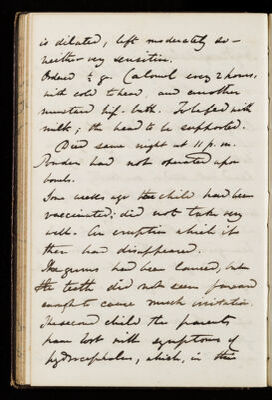 is dilated, left moderately so -
neither very sensitive.
Ordered ½ gr. Calomel every 2 hours,
with cold to head, and another
mustard hip-bath. To be fed with
milk; the head to be supported.
Died same night at 11 p.m.
Powders had not operated upon
bowels.
Some weeks ago the child had been
vaccinated; did not take very
well. An eruption which it
then had disappeared.
The gums had been lanced, but
the teeth did not seem forward
enough to cause much irritation.
The second child the parents
have lost with symptoms of
hydrocephalus, which, in this